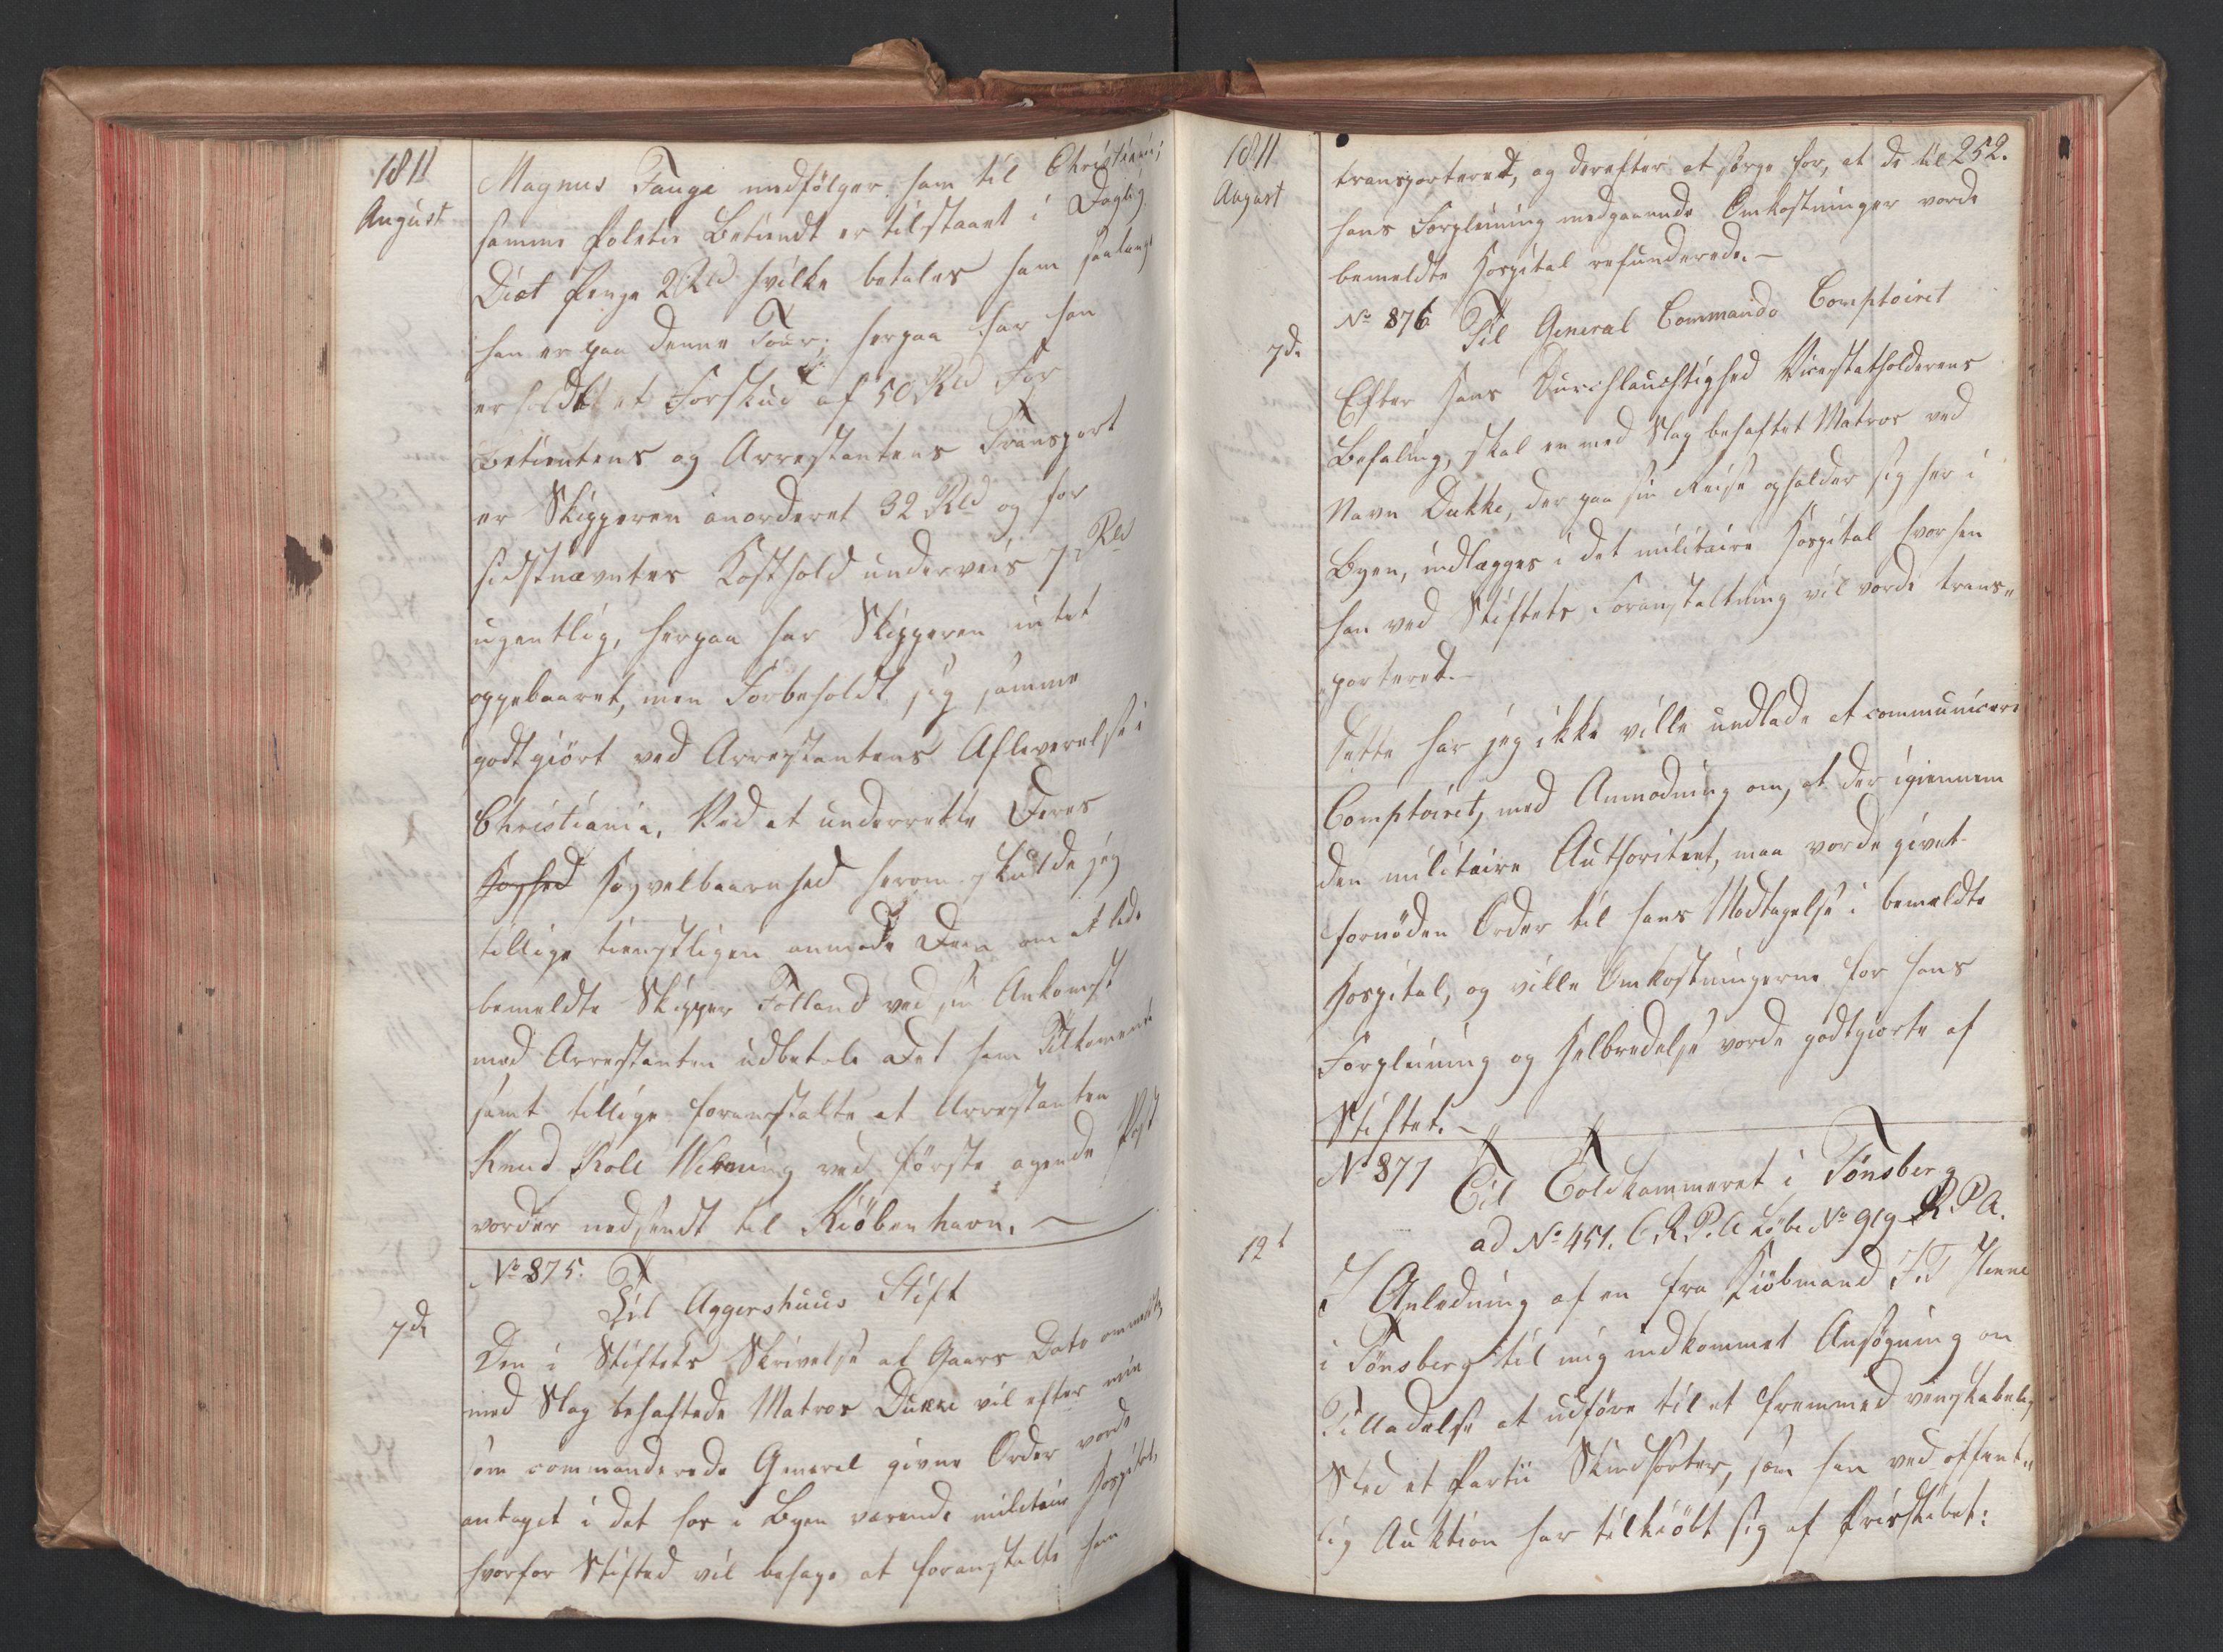 1811
August
Magnus Fauge medfölger ham til Christiania,
samme Politie Betiendt er tilstaaet i Daglig
Diæt Penge 2 Rbd hvilke betales ham saalænge
han er paa denne Tour; herpaa har han
erholdt et Forskud af 50 Rd For
Betientens og Arrestantens Transport
er Skipperen anorderet 32 Rd og for
sidstnævntes Kosthold underveis 7 Rd
ugentlig, herpaa har Skipperen intet
oppebaaret, men Forbeholdt sig samme
godtgiört ved Arrestantens Afleverelse i
Christiania. Ved at underrette Deres
Høyhed Høyvelbaarenhed herom skulde jeg
tillige tienstligen anmode Dem om at lade
bemeldte Skipper Tolland ved sin Ankomst
med Arrestanten udbetale Det ham Tilkomende
samt tillige foranstalte at Arrestanten
Knud Rolf Wibring ved förste agende Post
vorder nedsendt til Kiöbenhavn. —
No 875.
Til Aggershuus Stift
7de
Den i Stiftets Skrivelse af Gaars Dato ommeldte
med Slag behæftede Matros Dukke vil efter min
som commanderede General givne Order vorde
antaget i det her i Byen værende militaire Hospital,
hvorfor Stiftet vil behage at foranstalte ham
1811
August
252.
transporteret, og derefter at sørge for, at de til
hans Forpleining medgaaende Omkostninger vorde
bemeldte Hospital refunderede. —
No 876
Til General Commando Comptoiret
7de
Efter Hans Durchlauchtighed Vicestatholderens
Befaling, skal en med Slag behæftet Matros ved
Navn Dukke, der paa sin Reise opholder sig her i
Byen, indlægges i det militaire Hospital hvorhen
han ved Stiftets Foranstaltning vil vorde trans„
porteret. —
Dette har jeg ikke ville undlade at communicere
Comptoiret, med Anmodning om, at der igiennem
den militaire Authoritet, maa vorde givet
fornöden Order til hans Modtagelse i bemeldte
Hospital, og ville Omkostningerne for hans
Forpleining og Helbredelse vorde godtgiorte af
Stiftet. —
No 877
Til Toldkammeret i Tönsberg
ad No 451. C.R.P.A Löbe No 919 R.P.A.
12t
I Anledning af en fra Kiöbmand F.T. Flenne
i Tönsberg til mig indkommet Ansögning om
Tilladelse at udföre til et fremmed venskabelig
Sted et Partii Skindsorter, som han ved offent„
lig Auktion har tilkiöbt sig af Priseskibet: